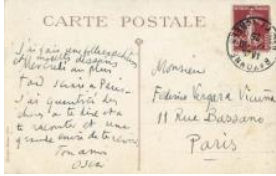 CARTE POSTALE
J'ai fait une folle excursion
et
Mercredi au plus
tard serai à Paris -
J'ai quantités des
choses à te dire et a
te raconter et une
grande envie de te revoir
Ton ami
Oscar
Monsieur
Federico Vergara Vicuña
11 Rue Bassano
Paris